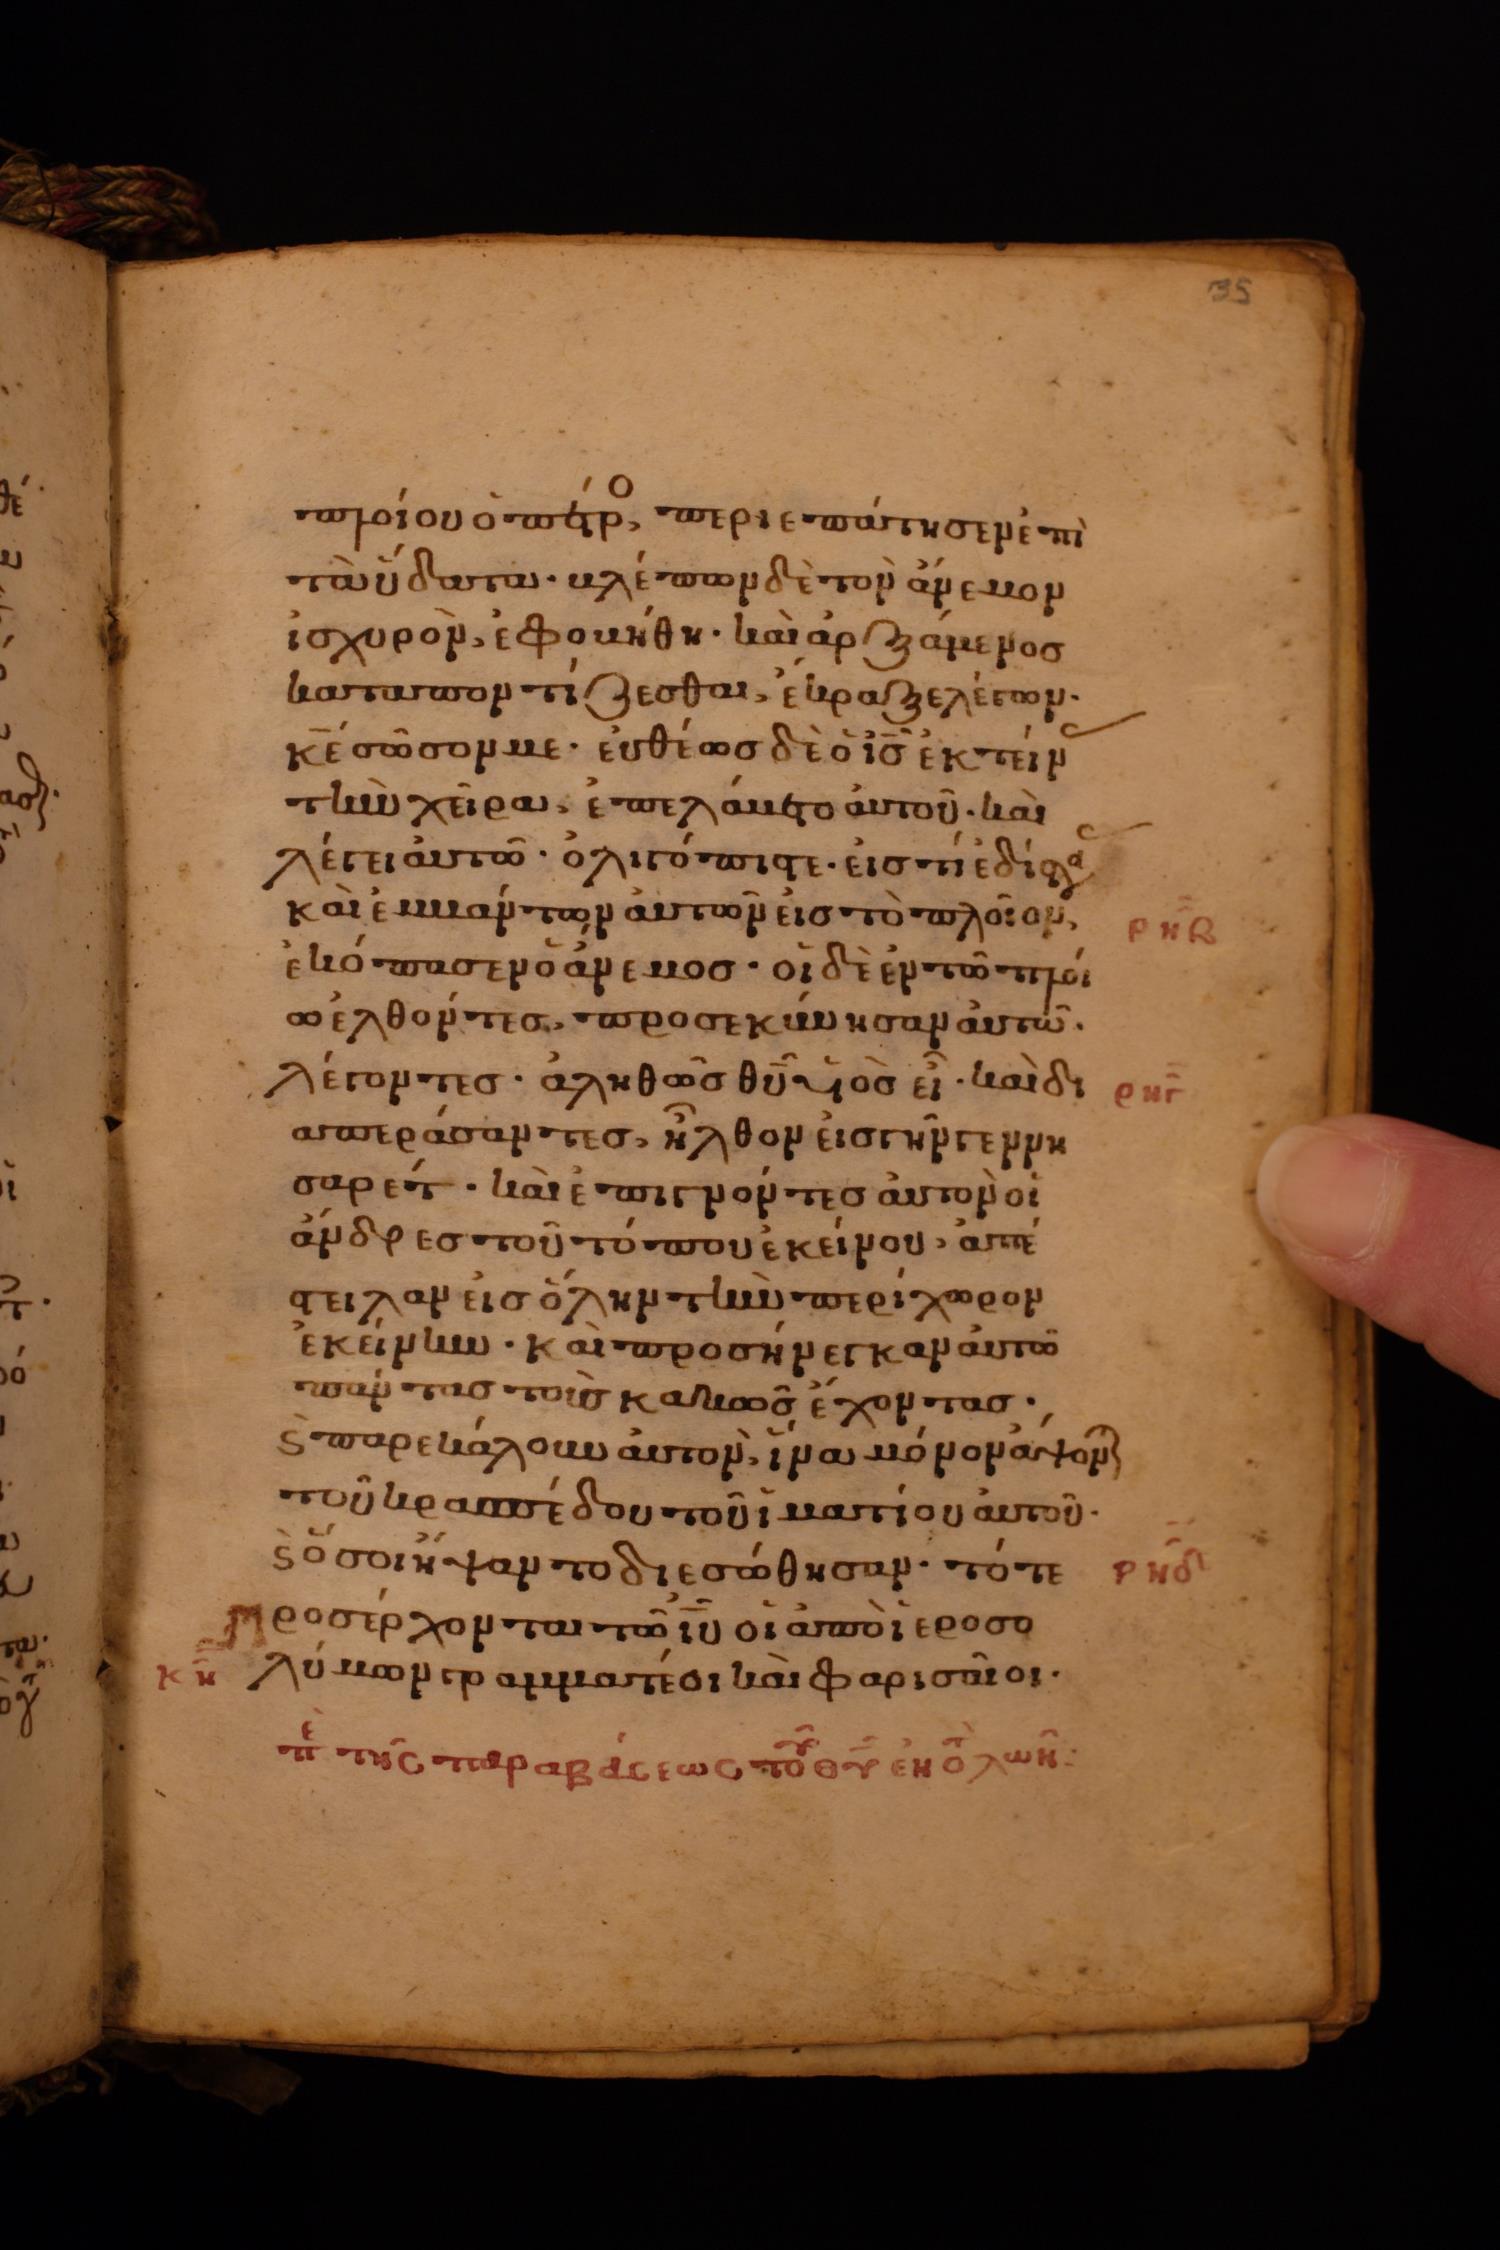 35
πλοίου ὁ πέτρο, περιεπάτησεν ἐπὶ
τὰ ὕδατα· βλέπων δὲ τὸν ἄνεμον
ἰσχυρὸν, ἐφοβήθη· καὶ ἀρξάμενοσ
καταποντίζεσθαι, ἔκραξε λέγων·
κε σῶσον με· ἐυθέωσ δὲ ὁ ισ ἐκτείν
τὴν χεῖρα, ἐπελάβετο ἀυτοῦ· καὶ
λέγει ἀυτῶ· ὀλιγόπιστε· εἰσ τί ἐδίστα
καὶ ἐμβάντων ἀυτῶν εἰσ τὸ πλοῖον,
ρνβ
ἐκόπασεν ὁ ἄνεμοσ· οἱ δὲ ἐν τῶ πλοί
ω ἐλθόντεσ, προσεκύνησαν ἀυτῶ·
λέγοντεσ· ἀληθῶσ θυ υἱὸσ εἶ· καὶ δι
ρνγ
απεράσαντεσ, ἦλθον εἰσ γῆν γεννη
σαρέτ· καὶ ἐπιγνόντεσ ἀυτὸν οἱ
ἄνδρεσ τοῦ τόπου ἐκείνου, ἀπέ
στειλαν εἰσ ὅλην τὴν περίχωρον
ἐκείνην· καὶ προσήνεγκαν ἀυτῶ
πάντασ τοὺσ κακῶσ ἔχοντασ·
ϛ παρεκάλουν ἀυτὸν, ἵνα μόνον ἅψον
τοῦ κρασπέδου τοῦ ἱματίου ἀυτοῦ·
ϛ ὅσοι ἥψαντο διεσώθησαν· τότε
ρνδ
Προσέρχονται τῶ ιυ οἱ ἀπὸ ἱεροσο
κη
λύμων γραμματέσι καὶ φαρισαῖοι·
πε τῆσ παραβάσεωσ τοῦ θυ ἐντολῶν: